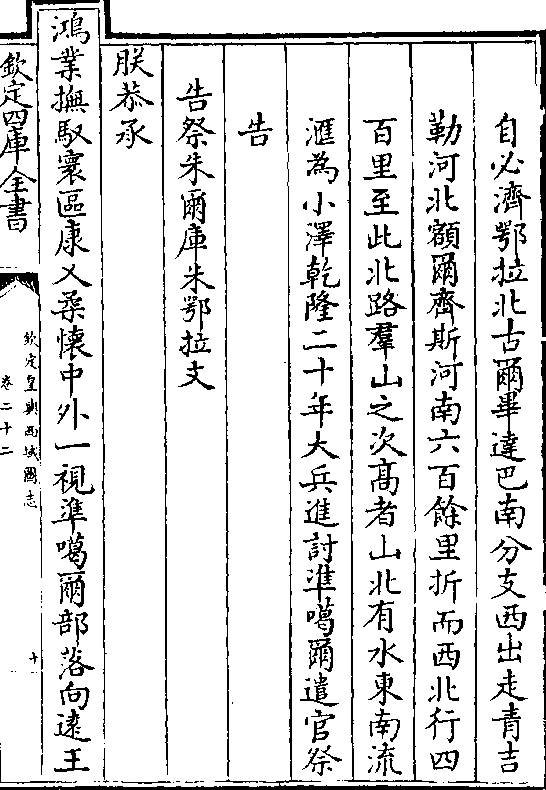 自必濟鄂拉北古爾畢達巴南分支西出走青吉
勒河北額爾齊斯河南六百餘里折而西北行四
百里至此北路羣山之次髙者山北有水東南流
滙為小澤乾隆二十年大兵進討準噶爾遣官祭
告
告祭朱爾庫朱鄂拉文
朕恭承
鴻業撫馭寰區康乂柔懷中外一視準噶爾部落向逺王
欽定四庫全書
欽定皇輿西域圖志
卷二十二
十